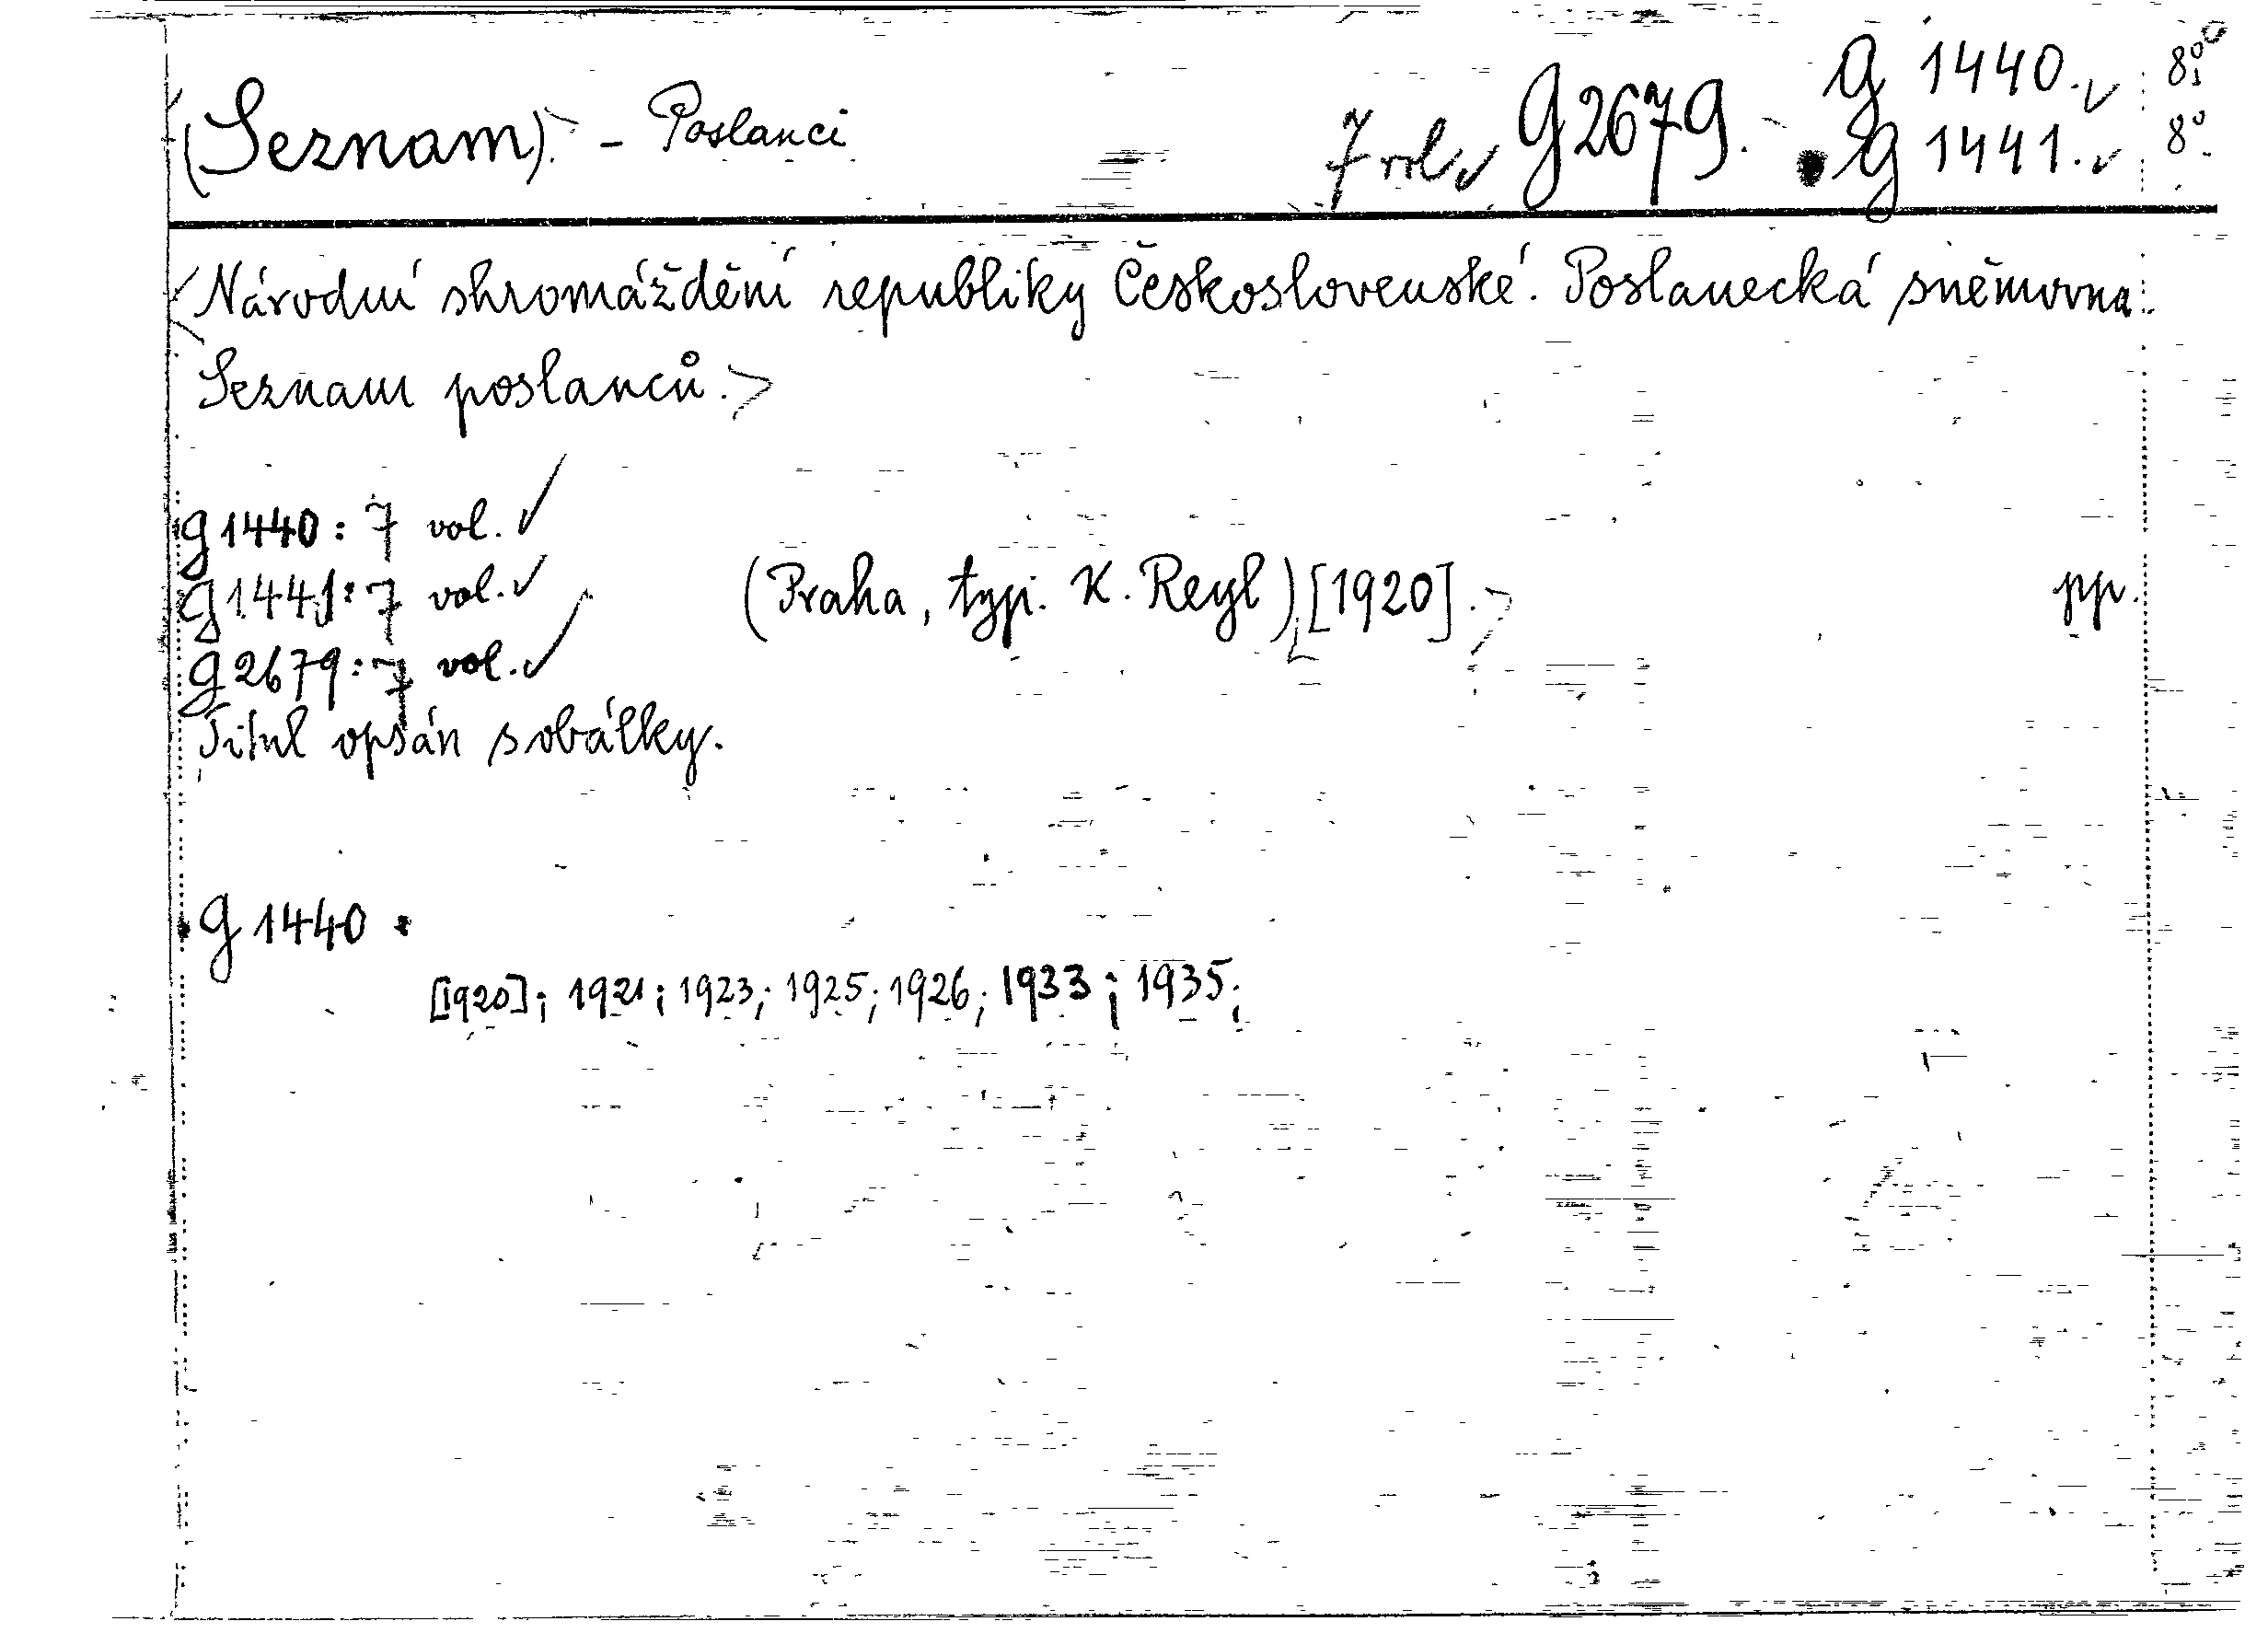 (Seznam) - Poslanci 7 vol. g 2679. g 1440. 8°
g 1441. 8°
Národní shromáždění republiky Československé. Poslanecká sněmovna.
Seznam poslanců.
g 1440: 7 vol.
g 1441: 7 vol. (Praha, typ. K. Reyl) [1920]. pp.
g 2679: 7 vol.
Titul opsán s obálky.
g 1440.
[1920]; 1921; 1923; 1925; 1926; 1933; 1935;